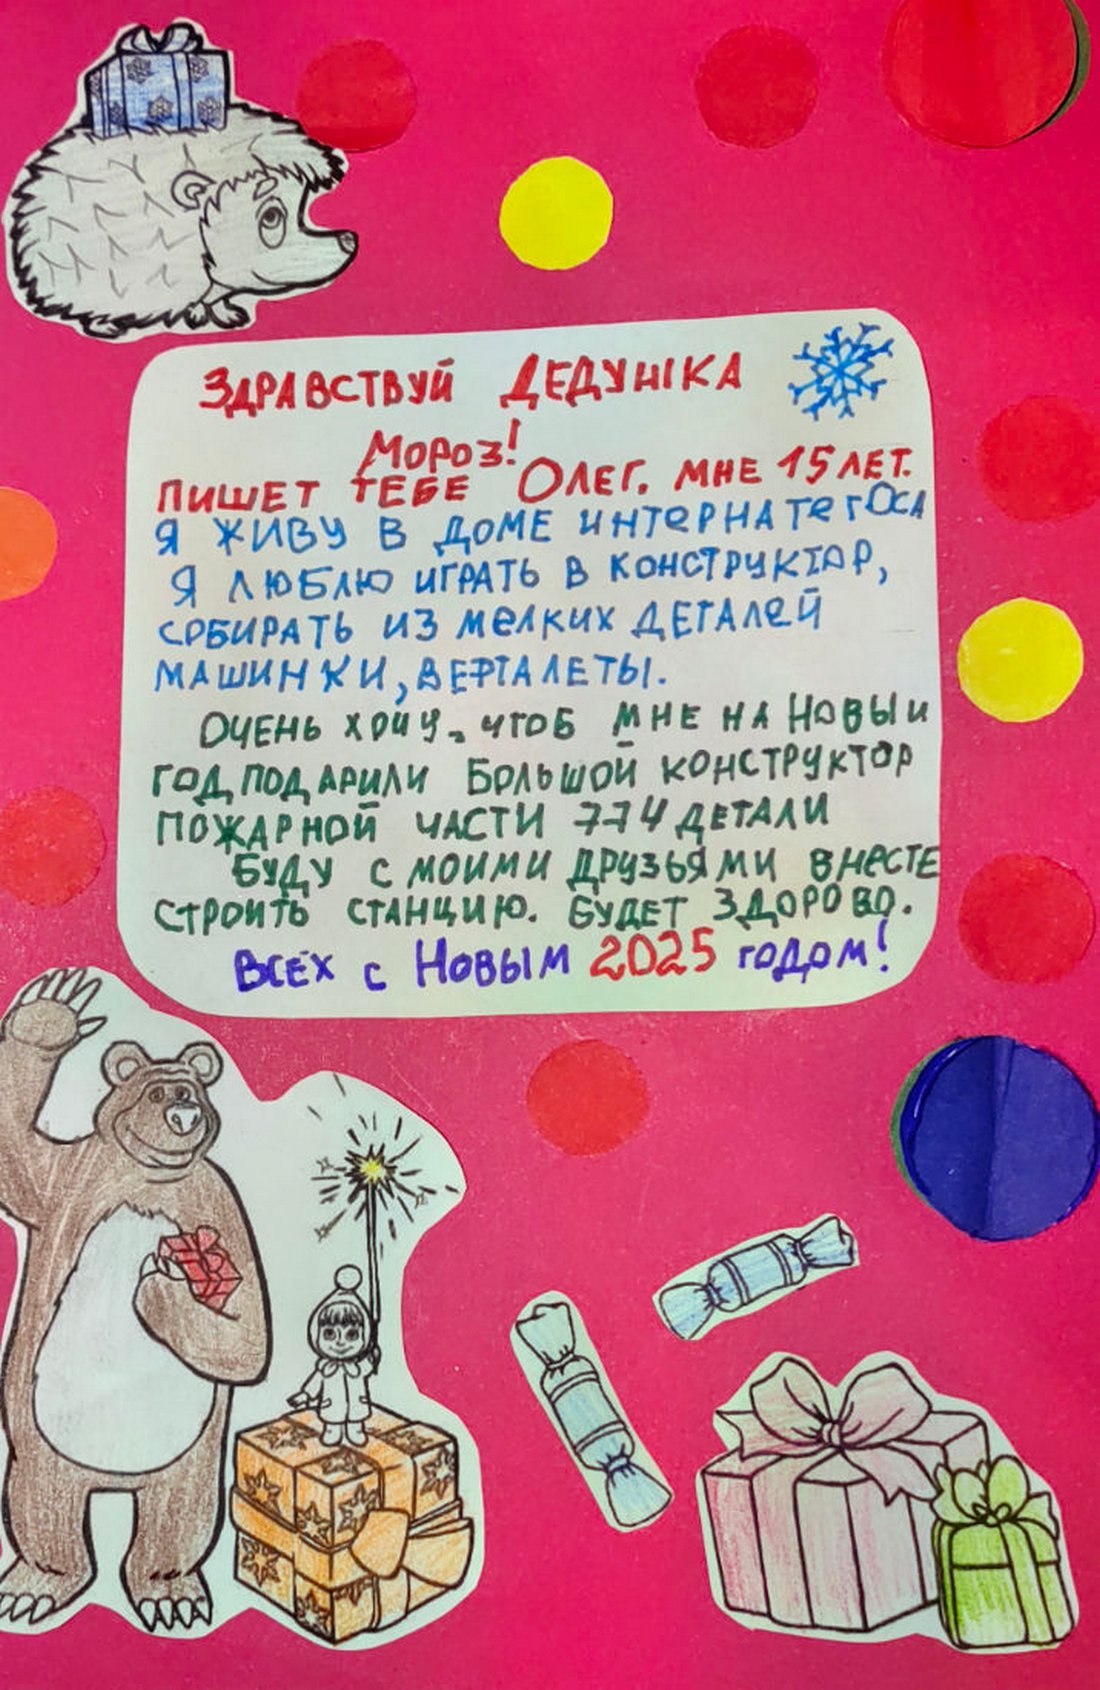 Здравствуй Дедушка
Мороз!
Пишет тебе Олег. мне 15 лет.
Я живу в доме интернате г Оса
Я люблю играть в конструктор,
собирать из мелких деталей
машинки, верталеты.
Очень хочу, чтоб мне на Новый
год подарили большой конструктор
пожарной части 774 детали
Буду с моими друзьями вместе
строить станцию. Будет здорово.
Всех с Новым 2025 годом!